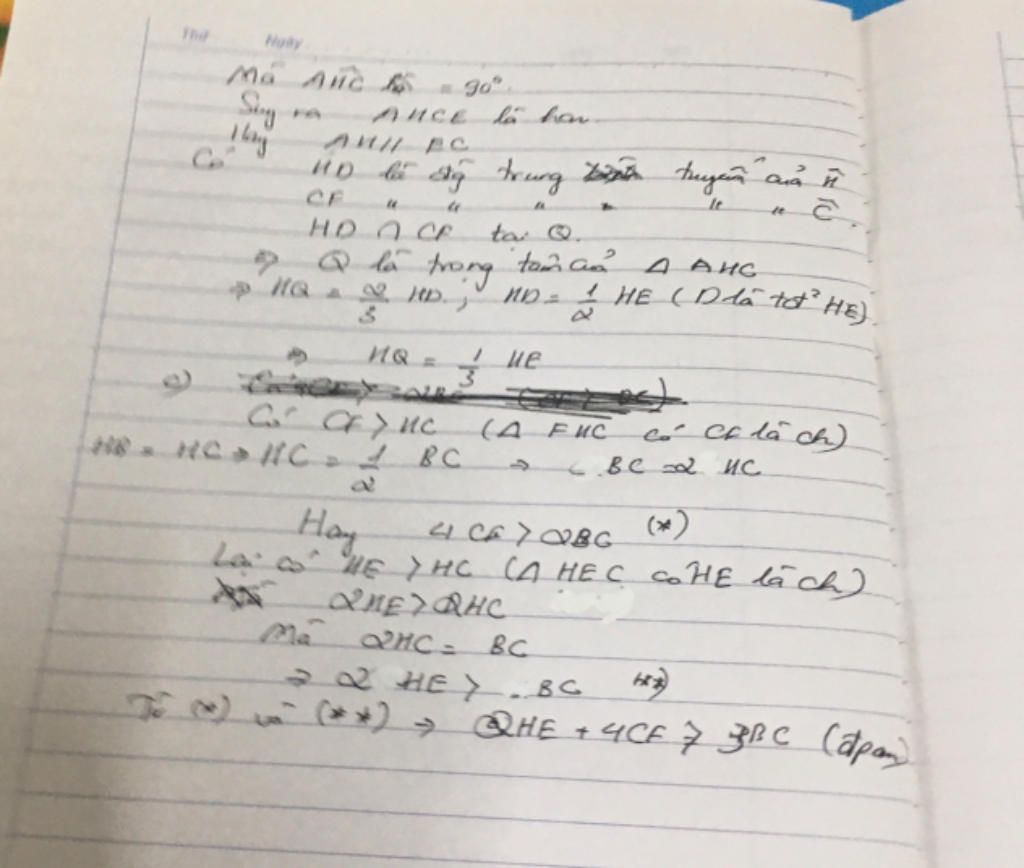 Thứ Ngày
Mà AHC = 90°.
Suy ra AHCE là hcn.
Hay AH // EC
Có HD là đg trung tuyến của H
CF " " " " " " C.
HD ∩ CF tại Q.
⇒ Q là trọng tâm của Δ AHC
⇒ HQ = 2/3 HD ; HD = 1/2 HE ( D là tđ² HE)
⇒ HQ = 1/3 HE
c)
Có CF > HC (Δ FHC có CF là ch)
HB = HC ⇒ HC = 1/2 BC ⇒ BC = 2 HC
Hay 4 CF > 2BC (*)
Lại có HE > HC (Δ HEC có HE là ch)
2HE > 2HC
Mà 2HC = BC
⇒ 2 HE > BC (**)
Từ (*) và (**) ⇒ 2HE + 4CF > 3BC (đpcm)